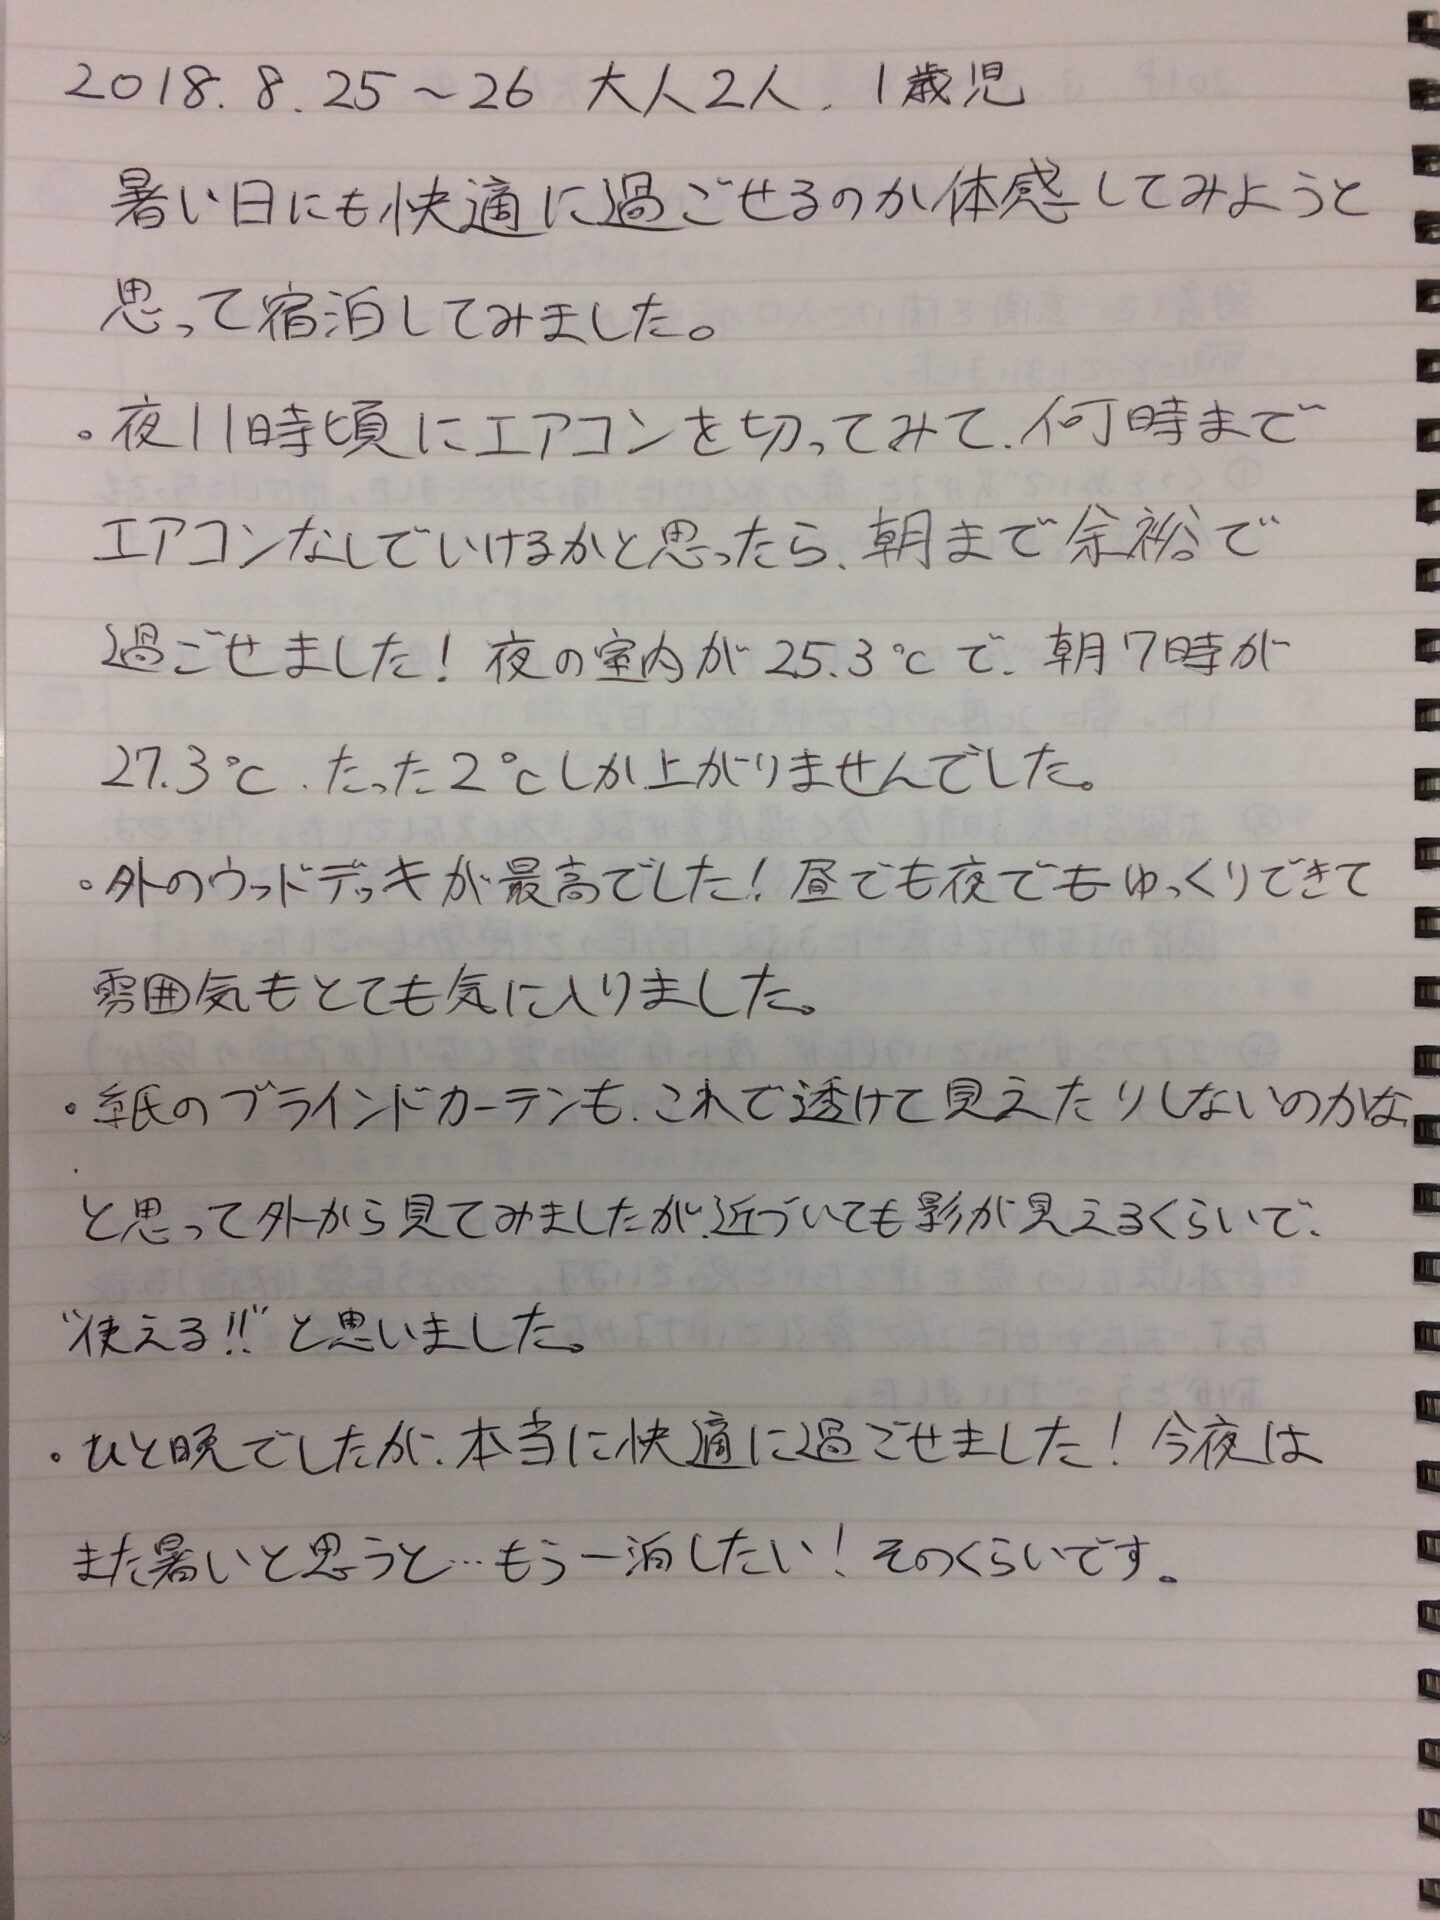 2018. 8. 25〜26 大人2人. 1歳児
暑い日にも快適に過ごせるのか体感してみようと
思って宿泊してみました。
・夜11時頃にエアコンを切ってみて、何時まで
エアコンなしでいけるかと思ったら、朝まで余裕で
過ごせました! 夜の室内が25.3℃で、朝7時が
27.3℃、たった2℃しか上がりませんでした。
・外のウッドデッキが最高でした! 昼でも夜でもゆっくりできて
雰囲気もとても気に入りました。
・紙のブラインドカーテンも、これで透けて見えたりしないのかな、
と思って外から見てみましたが、近づいても影が見えるくらいで、
"使える!!"と思いました。
・ひと晩でしたが、本当に快適に過ごせました! 今夜は
また暑いと思うと…もう一泊したい! そのくらいです。